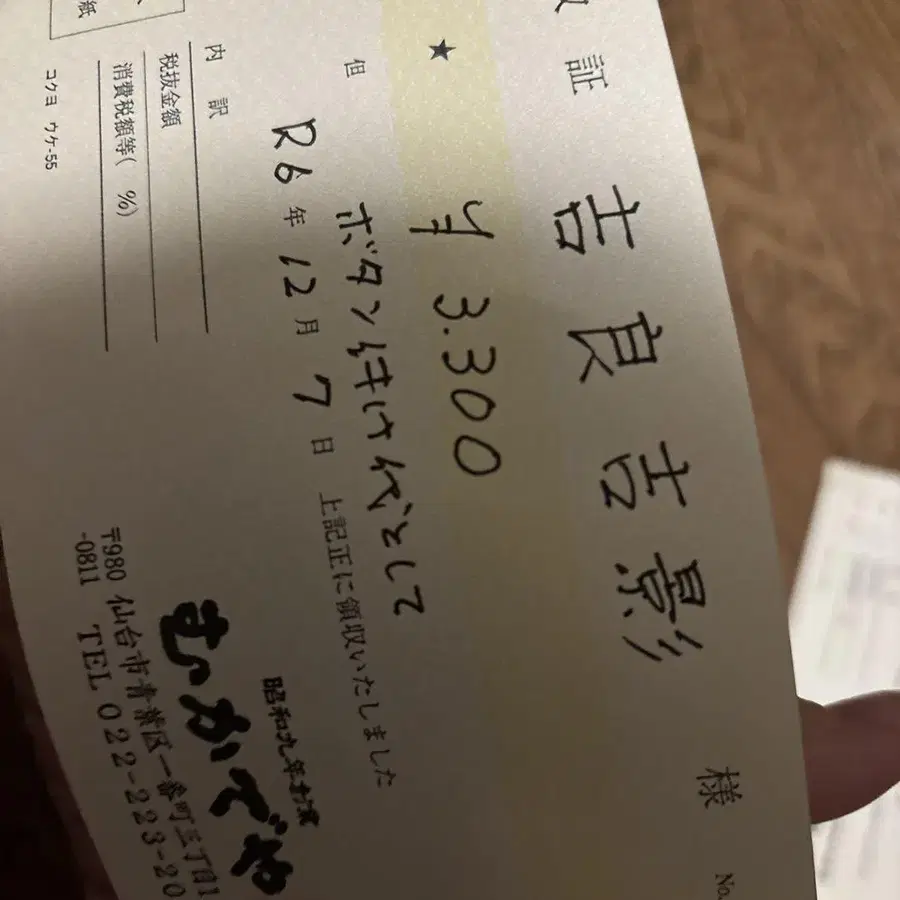 証
No.
吉良吉影 様
★ ¥3.300
但 ボタン付け代として
R6年12月7日 上記正に領収いたしました
内訳
税抜金額
消費税額等( %)
コクヨ ウケ-55
紙
昭和九年創業
むかでや
〒980-0811 仙台市青葉区一番町三丁目1
TEL 022-223-20